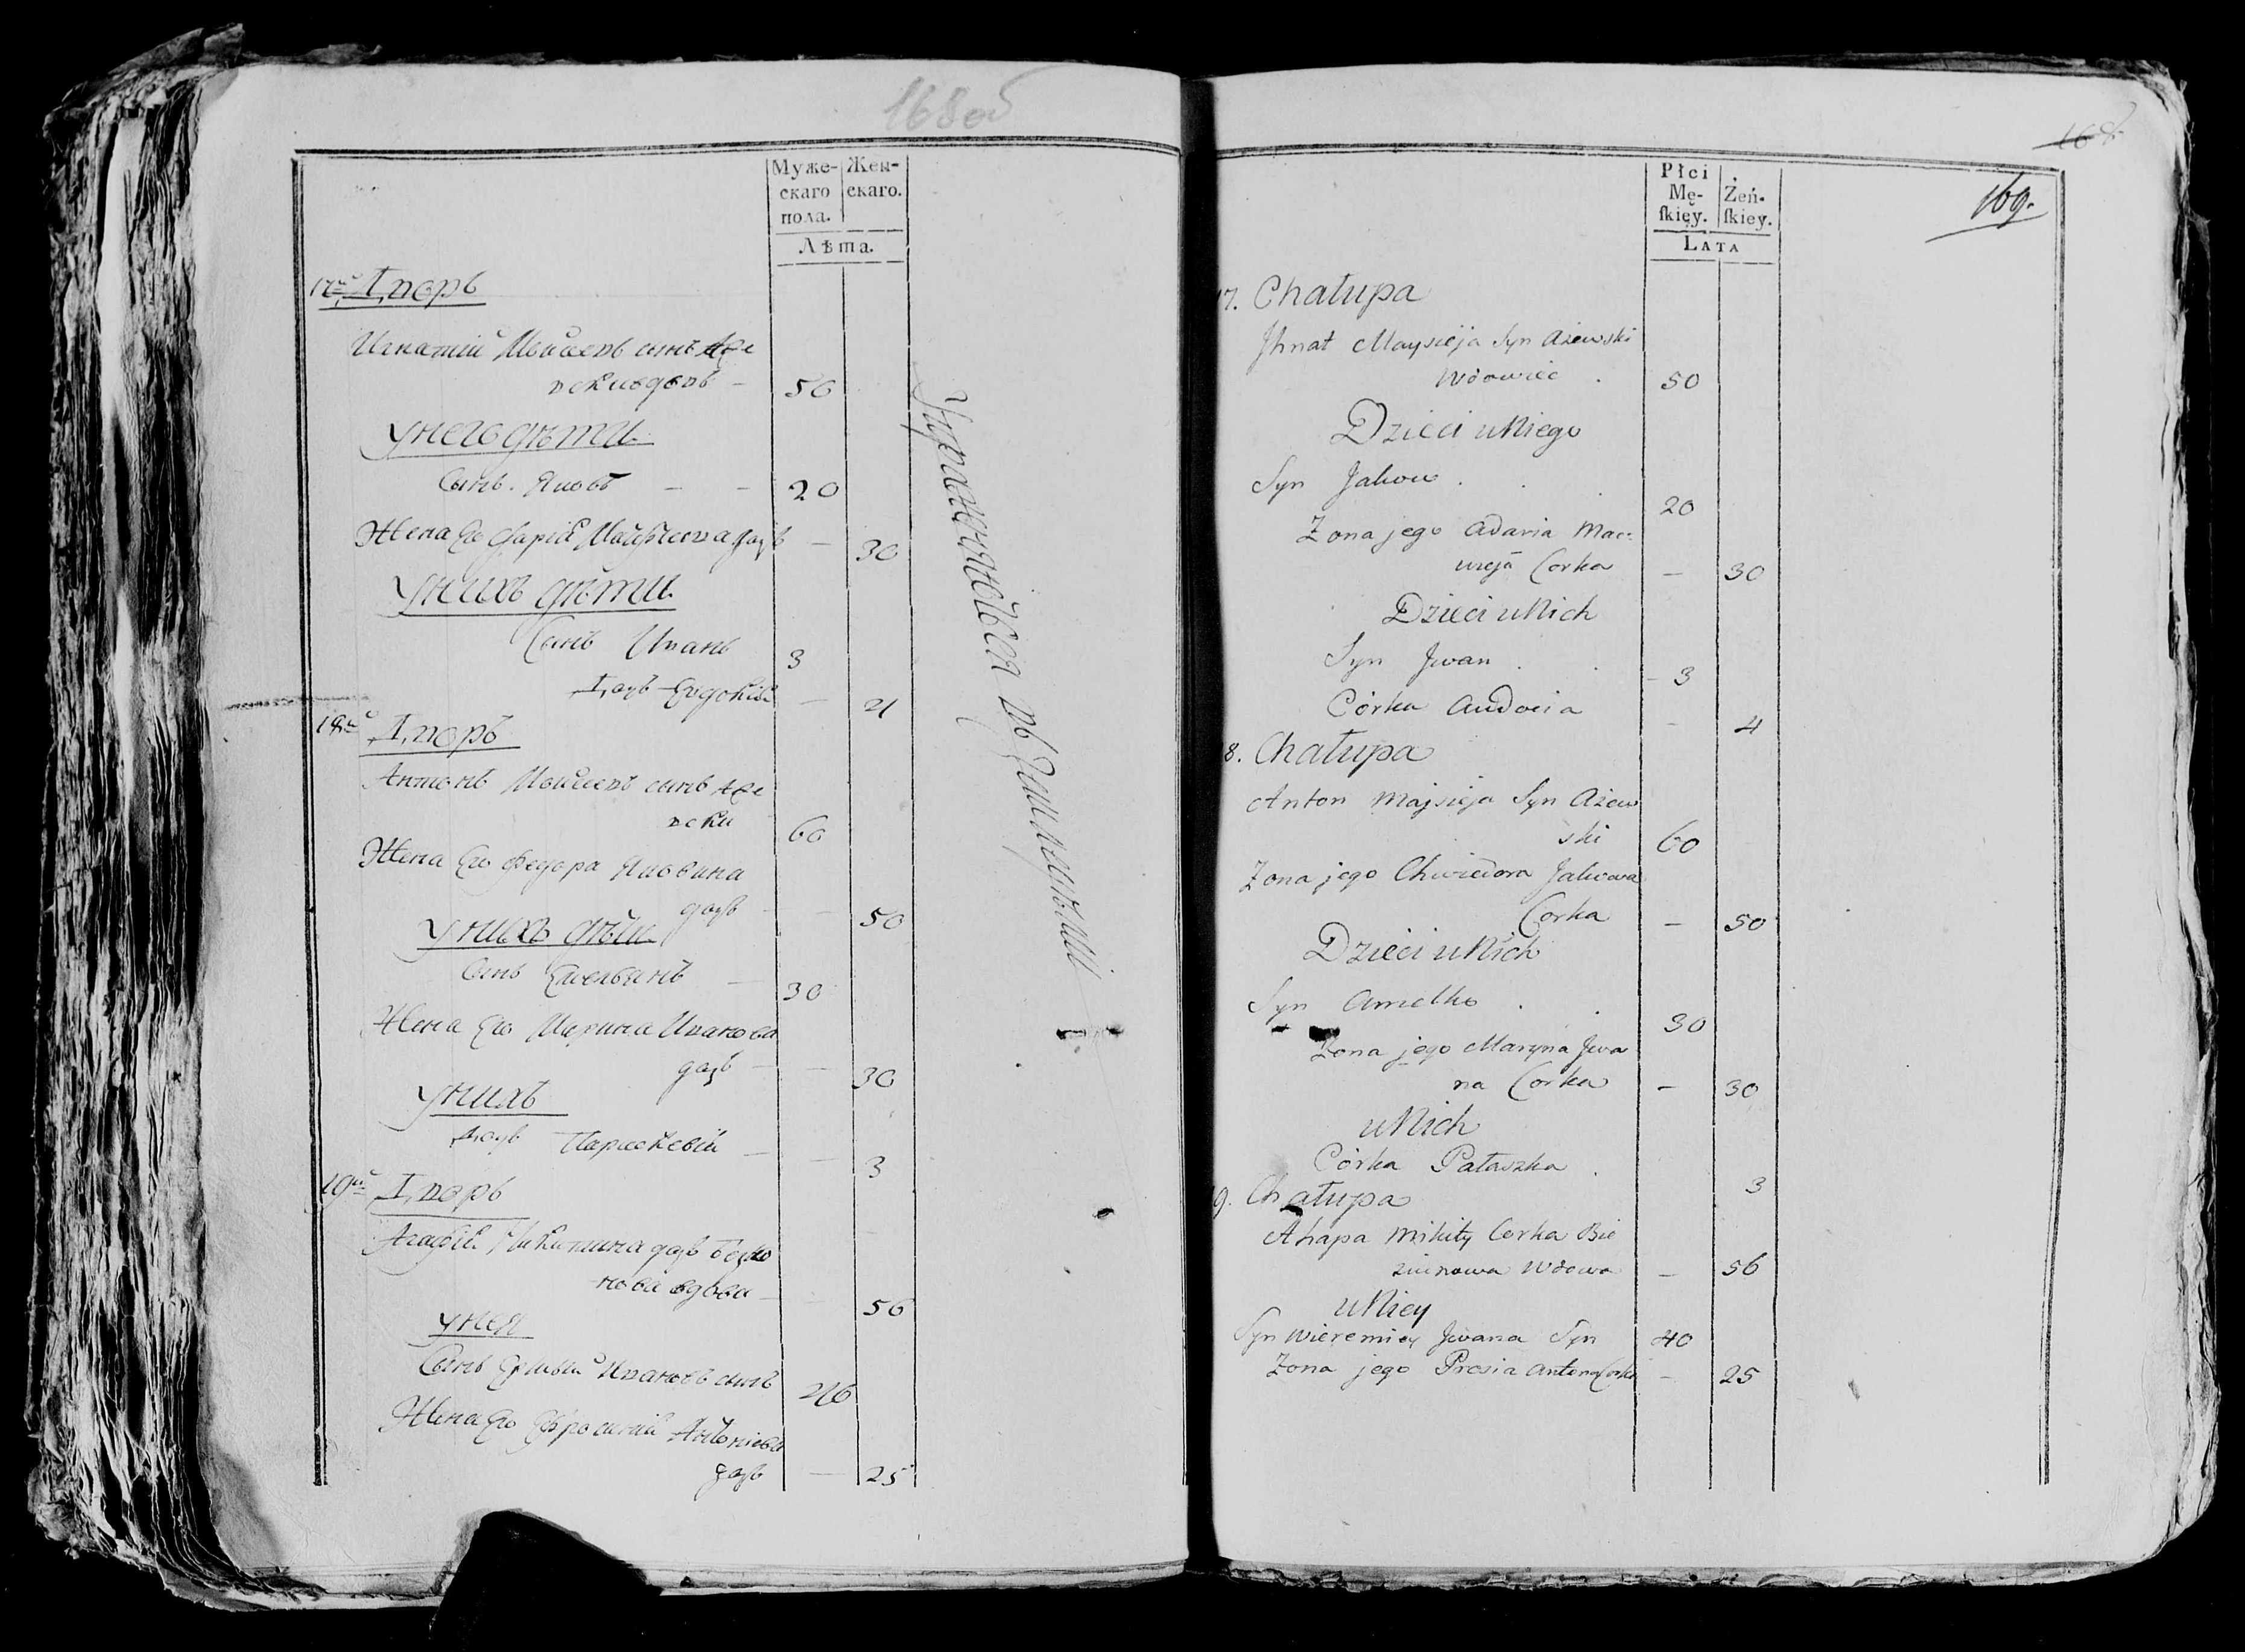 168 об
Муже-
скаго
пола.
Жен-
скаго.
Лѣта.
17й Дворъ
Игнатій Моисеевъ сынъ Аже
вски вдовъ — 50
У него дѣти
Сынъ Яковъ — — 20
Жена Его Дарія Матфеева дочь — 30
У нихъ дѣти
Сынъ Иванъ 3
Дочь Евдокія — 4
18й Дворъ
Антонъ Моисеевъ сынъ Аже
вски 60
Жена Его Федора Яковлева
дочь — 50
У нихъ дѣти
Сынъ Емельянъ — 30
Жена Его Марина Иванова
дочь — — 30
У нихъ
дочь Параскевія — — 3
19й Дворъ
Агафія Никитина дочь
вдова — 56
У нея
Сынъ Еремѣй Ивановъ сынъ 40
Жена Его Ефросинія Антоніева
дочь — 25
169.
Płci
Mę-
skiey.
Żeń-
skiey.
LATA
17. Chałupa
Jhnat Maysieja Syn Ażewski
Wdowiec . 50
Dzieci u Niego
Syn Jakow . . 20
Zona jego Adaria Mac:
wieja Corka — 30
Dzieci u Nich
Syn Jwan . . 3
Córka Audocia — 4
8. Chałupa
Anton Majsieja Syn Ażew
ski 60
Zona jego Chwiedora Jakowa
Corka — 50
Dzieci u Nich
Syn Amelko . . 30
Zona jego Maryna Jwa
na Corka — 30
u Nich
Córka Pałaszka . 3
9. Chałupa
Ahapa Mikity Corka Bie
ziunowa Wdowa — 56
u Niey
Syn Wieremiey Jwana Syn 40
Zona jego Prosia Antona Corka — 25